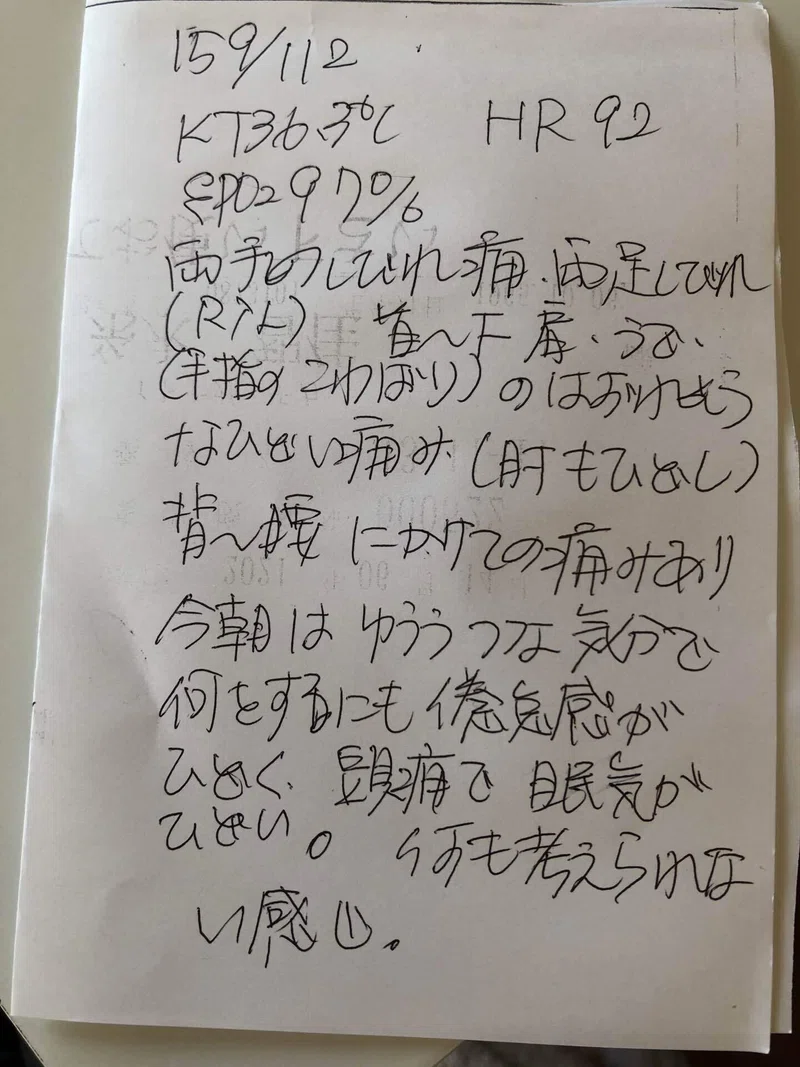 159/112
KT36.3℃ HR 92
SPO2 97%
両手のしびれ痛、両足しびれ
(R↑L) 首〜下肩、うで、
(手指のこわばり)のはおれそう
なひどい痛み(肘もひどし)
背〜腰にかけての痛みあり
今朝はゆううつな気分で
何をするにも倦怠感が
ひどく、頭痛で眠気が
ひどい。何も考えられな
い感じ。
2021